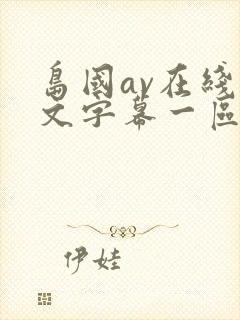 島國av在綫
文字幕一區
伊娃